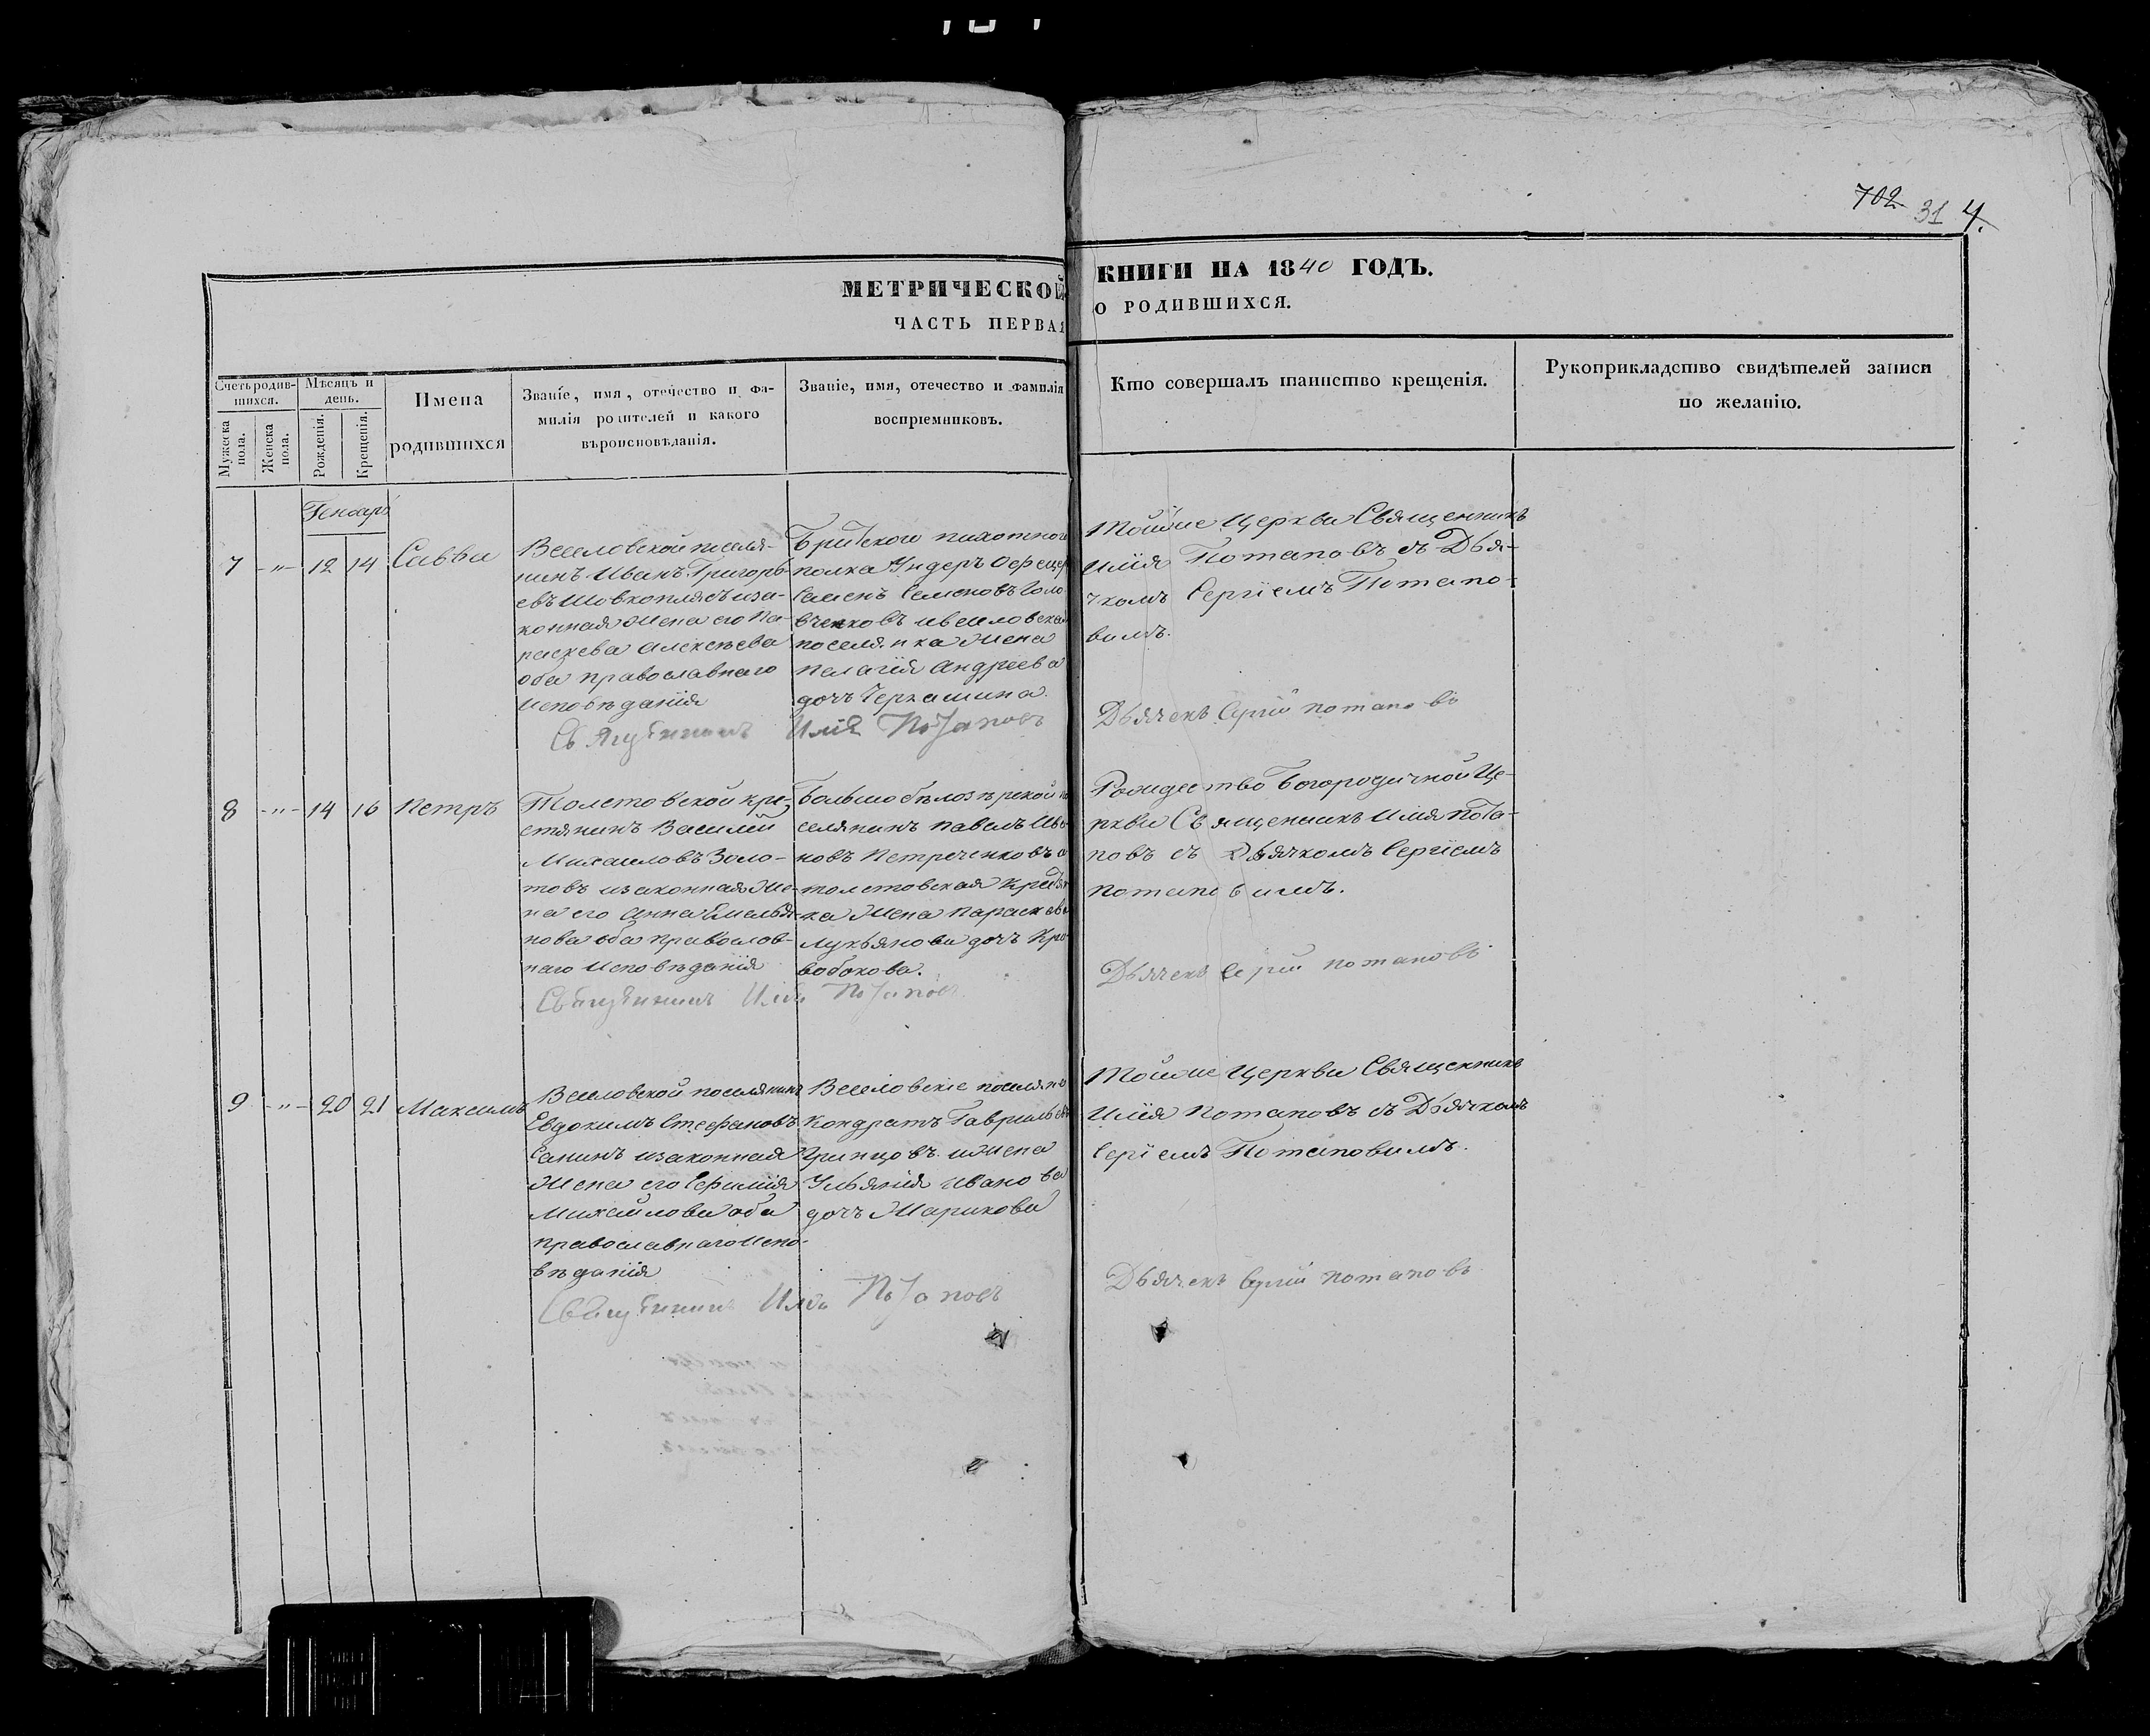 702 31 4.
МЕТРИЧЕСКОЙ КНИГИ НА 1840 ГОДЪ.
ЧАСТЬ ПЕРВАЯ О РОДИВШИХСЯ.
Счетъ родив-
шихся.
Мужеска
пола.
Женска
пола.
Мѣсяцъ и
день.
Рожденія.
Крещенія.
Имена
родившихся
Званіе, имя, отечество и фа-
милія родителей и какого
вѣроисповѣданія.
Званіе, имя, отечество и фамилія
воспріемниковъ.
Кто совершалъ таинство крещенія.
Рукоприкладство свидѣтелей записи
по желанію.
Генваръ
7 -"- 12 14 Савва
Веселовской поселя-
нинъ Иванъ Григорь-
евъ Шовкоплясъ иза-
конная Жена его Па-
раскева Алексѣева
оба православнаго
Исповѣданія
пихотного
полка Ундеръ Офецер
Семенъ Семеновъ Голо
вченковъ ивеселовская
поселянка Жена
Пелагія Андреева
дочъ Черкашина.
Тойже Церкви Священникъ
Илія Потаповъ съ Дья-
чкомъ Сергіемъ Потапо-
вимъ.
Священникъ Илія Потаповъ
Дьячекъ Сергій потаповъ
8 -"- 14 16 Петръ
Толстовской кре-
стянинъ Василій
Михаиловъ Золо-
товъ изаконная Же-
на его Анна Емелья-
нова оба православ-
наго Исповѣданія
Большобѣлозѣрской по
селянинъ Павелъ Ива
новъ Петреченковъ а
толстовская Крестян
ка Жена Параскева
Лукьянова дочъ Кри
вобокова.
Рождество Богородичной Це-
ркви Священникъ Илія Пота-
повъ съ Дьячкомъ Сергіемъ
Потаповимъ.
Священникъ Илія Потаповъ
Дьячекъ Сергій потаповъ
9 -"- 20 21 Максимъ
Веселовской поселянинъ
Евдокимъ Стефановъ
Санинъ изаконная
Жена его Евфимія
Михайлова оба
православнаго Испо-
вѣданія
Веселовскіе поселяне
Кондратъ Гавриловъ
Гринцовъ и Жена
Ульянія Иванова
дочъ Жарикова
Тойже Церкви Священникъ
Илія Потаповъ съ Дьячкомъ
Сергіемъ Потаповимъ.
Священникъ Илія Потаповъ
Дьячекъ Сергій потаповъ